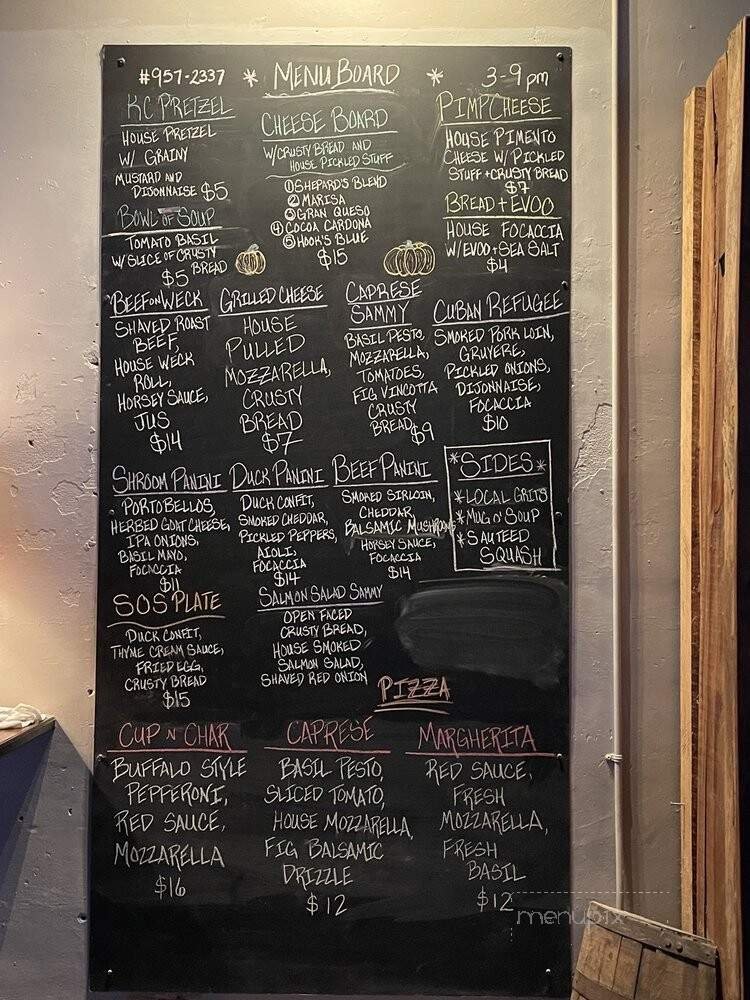 #957-2337 * MENU BOARD * 3-9 pm
KC PRETZEL
HOUSE PRETZEL
W/ GRAINY
MUSTARD AND
DIJONNAISE $5
CHEESE BOARD
W/CRUSTY BREAD AND
HOUSE PICKLED STUFF
① SHEPARD'S BLEND
② MARISA
③ GRAN QUESO
④ COCOA CARDONA
⑤ HOOK'S BLUE
$15
PIMPCHEESE
HOUSE PIMENTO
CHEESE W/ PICKLED
STUFF + CRUSTY BREAD
$7
BOWL OF SOUP
TOMATO BASIL
W/ SLICE OF CRUSTY
BREAD
$5
BREAD + EVOO
HOUSE FOCACCIA
W/EVOO + SEA SALT
$4
BEEF ON WECK
SHAVED ROAST
BEEF,
HOUSE WECK
ROLL,
HORSEY SAUCE,
JUS
$14
GRILLED CHEESE
HOUSE
PULLED
MOZZARELLA,
CRUSTY
BREAD
$7
CAPRESE
SAMMY
BASIL PESTO,
MOZZARELLA,
TOMATOES,
FIG VINCOTTA
CRUSTY
BREAD $9
CUBAN REFUGEE
SMOKED PORK LOIN,
GRUYERE,
PICKLED ONIONS,
DIJONNAISE,
FOCACCIA
$10
SHROOM PANINI
PORTOBELLOS,
HERBED GOAT CHEESE,
IPA ONIONS,
BASIL MAYO,
FOCACCIA
$11
DUCK PANINI
DUCK CONFIT,
SMOKED CHEDDAR,
PICKLED PEPPERS,
AIOLI,
FOCACCIA
$14
BEEF PANINI
SMOKED SIRLOIN,
CHEDDAR,
BALSAMIC MUSHROOMS
HORSEY SAUCE,
FOCACCIA
$14
*SIDES*
*LOCAL GRITS
*MUG O' SOUP
*SAUTEED
SQUASH
SOS PLATE
DUCK CONFIT,
THYME CREAM SAUCE,
FRIED EGG,
CRUSTY BREAD
$15
SALMON SALAD SAMMY
OPEN FACED
CRUSTY BREAD,
HOUSE SMOKED
SALMON SALAD,
SHAVED RED ONION
PIZZA
CUP N CHAR
BUFFALO STYLE
PEPPERONI,
RED SAUCE,
MOZZARELLA
$16
CAPRESE
BASIL PESTO,
SLICED TOMATO,
HOUSE MOZZARELLA,
FIG BALSAMIC
DRIZZLE
$12
MARGHERITA
RED SAUCE,
FRESH
MOZZARELLA,
FRESH
BASIL
$12
menupix